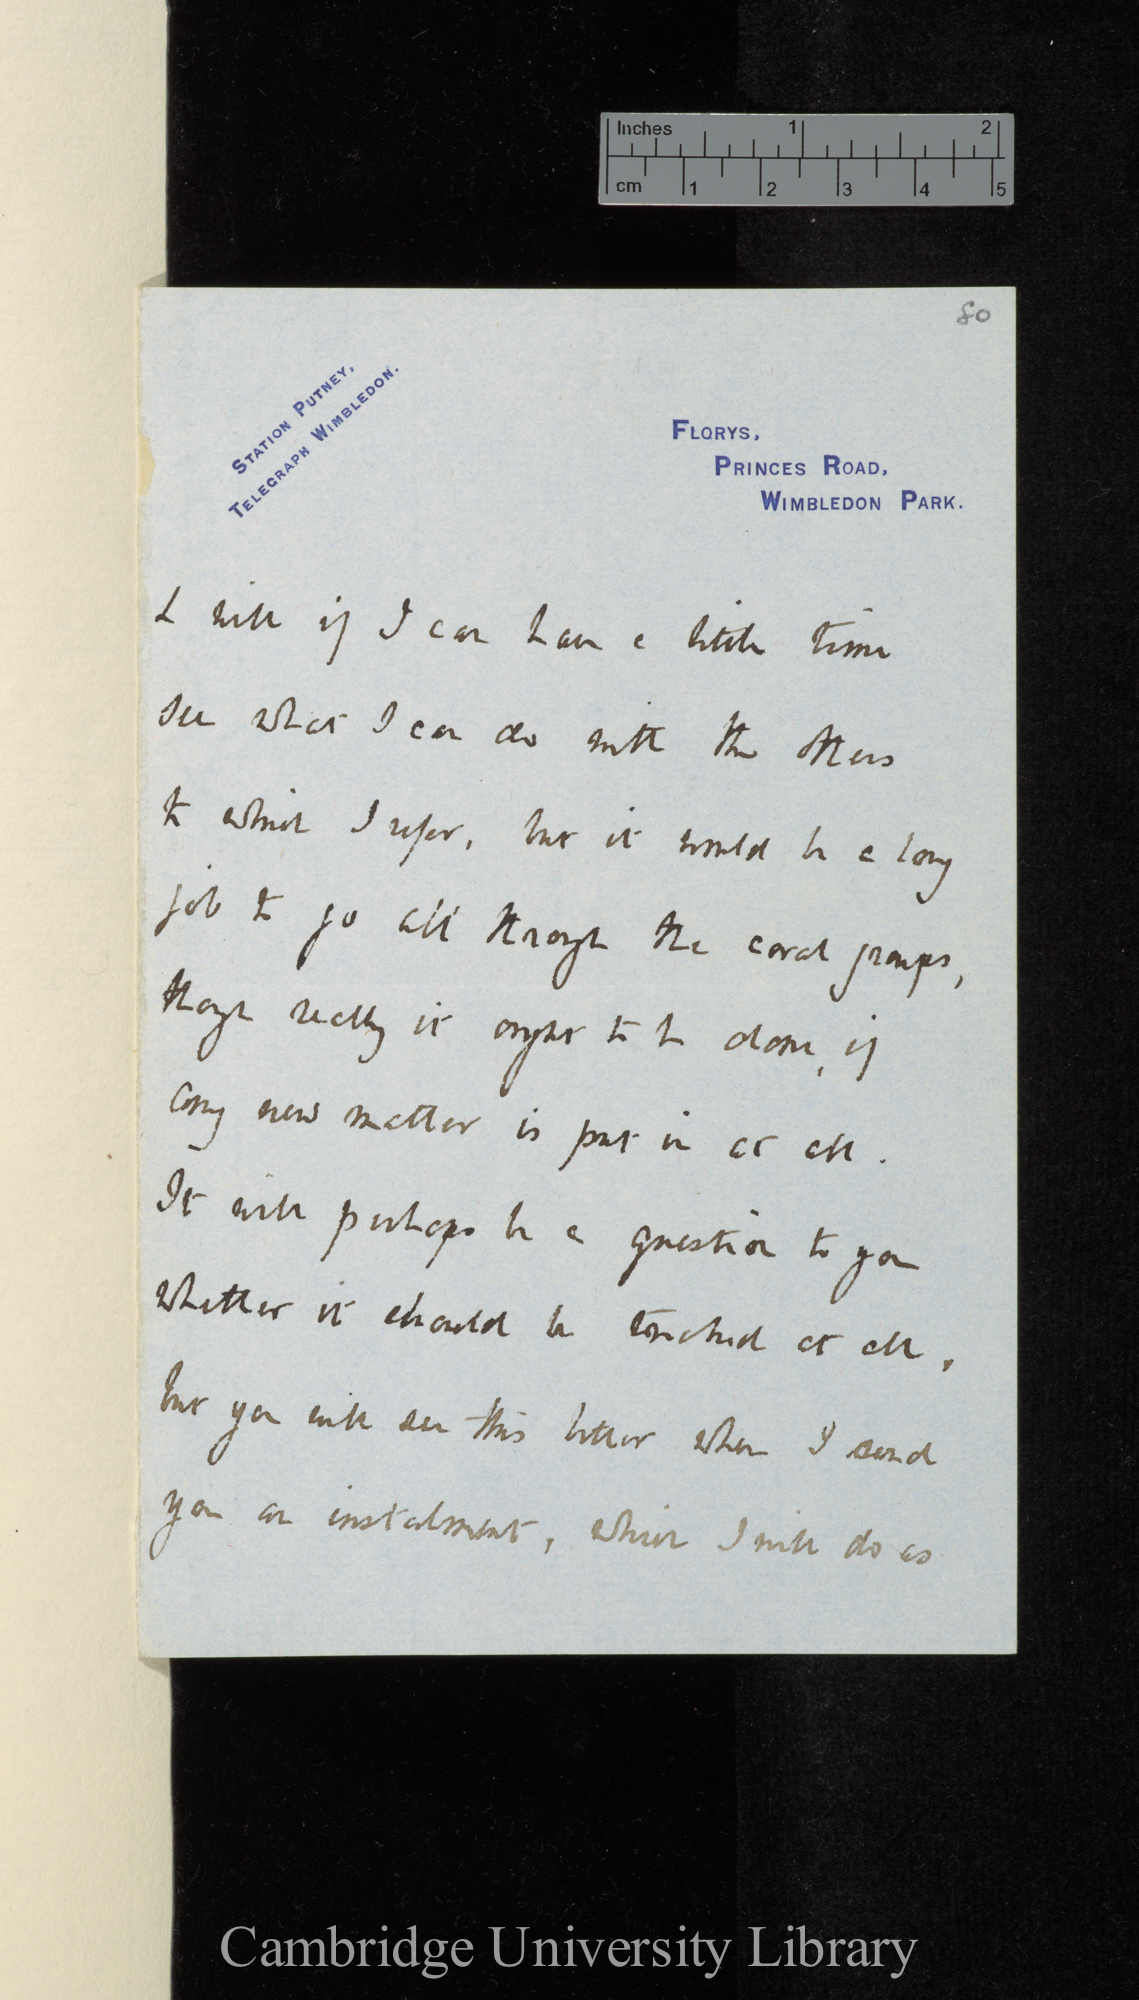 Inches 1 2
cm 1 2 3 4 5
80
Station Putney,
Telegraph Wimbledon.
Florys,
Princes Road,
Wimbledon Park.
I will if I can have a little time
see what I can do with the others
to which I refer, but it would be a long
job to go all through the coral groups,
though really it ought to be done, if
any new matter is put in at all.
It will perhaps be a question to you
whether it should be touched at all,
but you will see this better when I send
you an instalment, which I will do as
Cambridge University Library